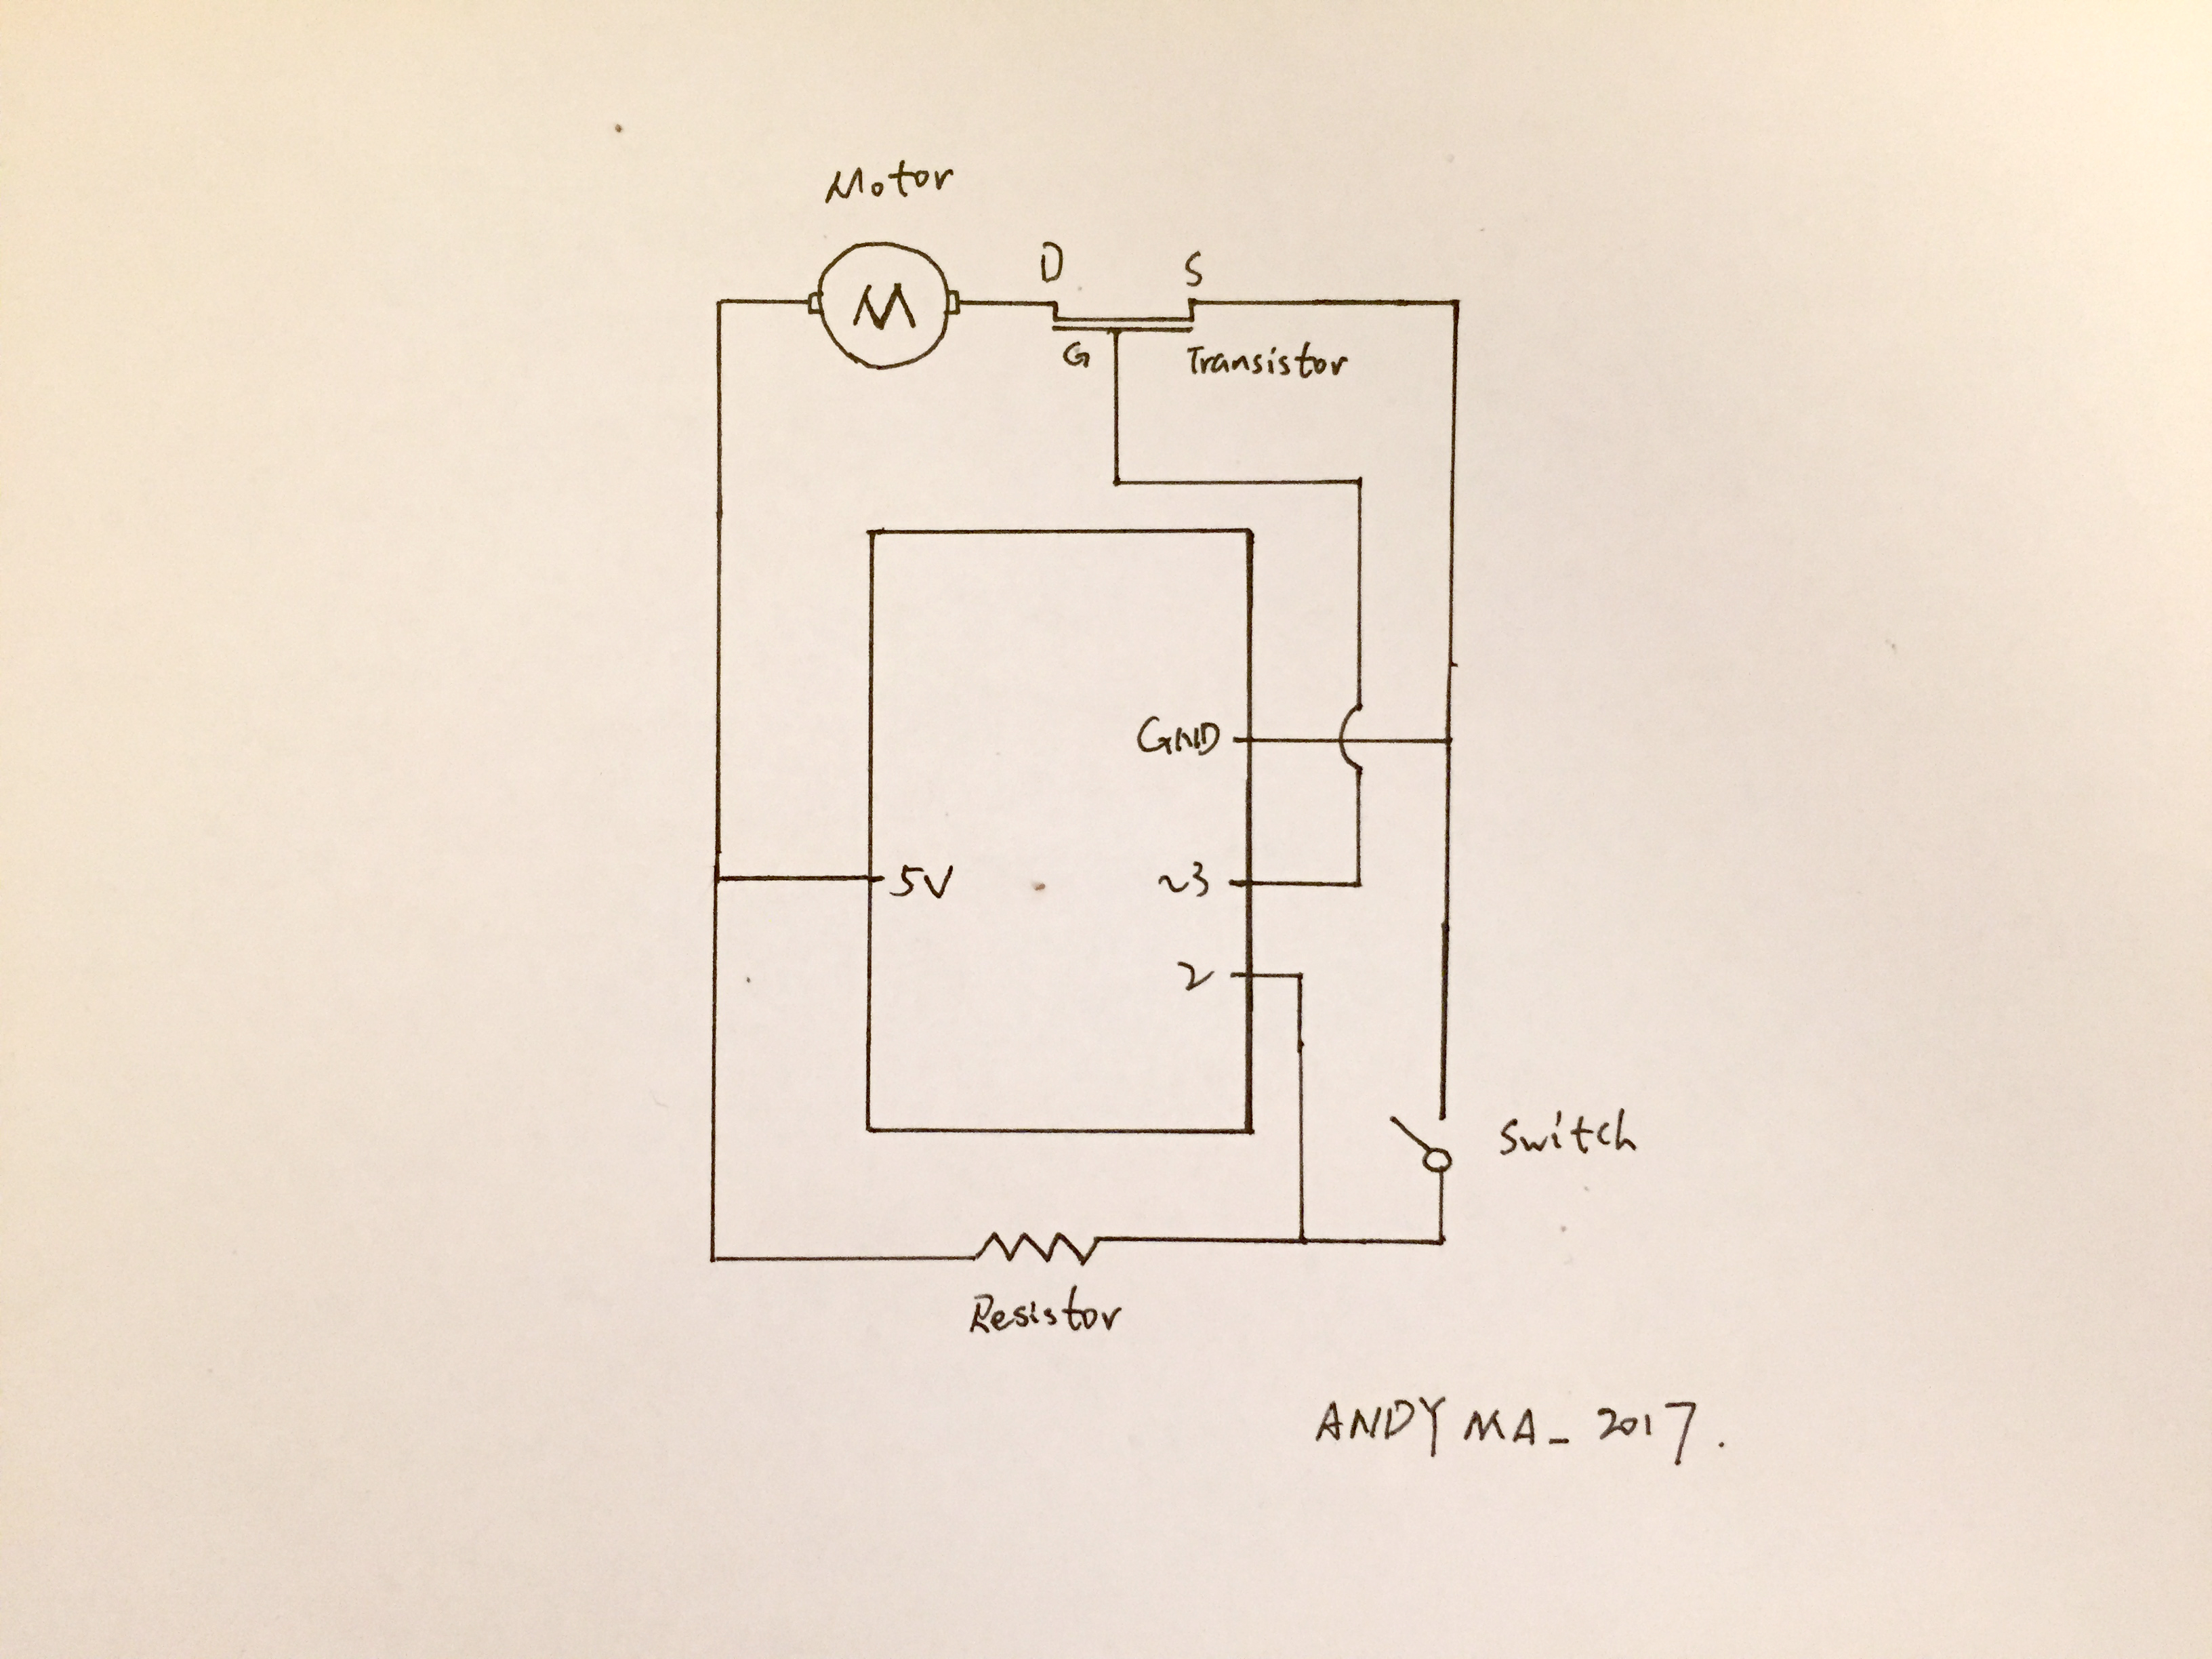 Motor
M
D S
G Transistor
GND
5V ~3
2
Switch
Resistor
ANDY MA_ 2017.